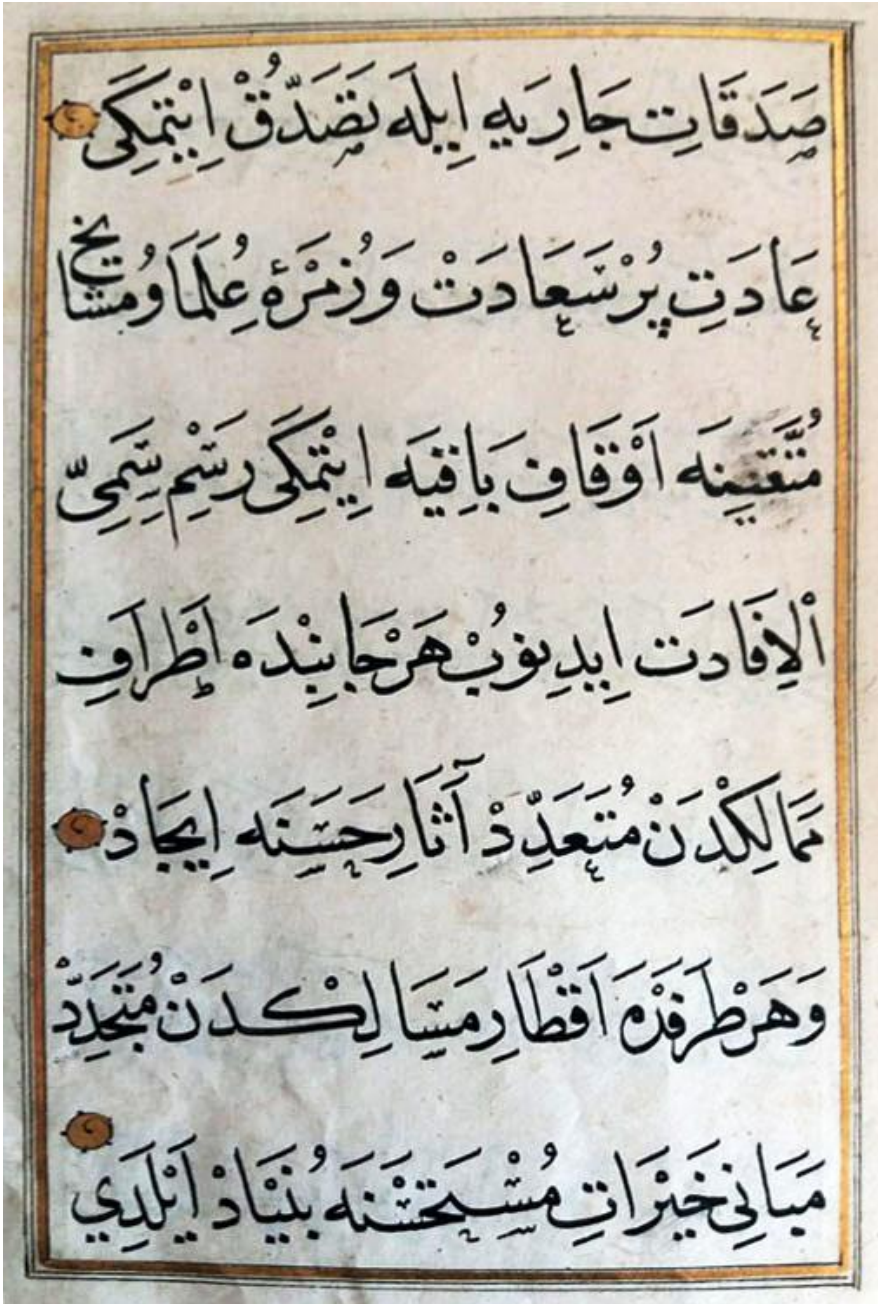 صَدَقَاتِ جَارِيَه اِيلَه تَصَدُّقْ اِيتْمِكِى
عَادَتِ پُرْ سَعَادَتْ وَ زُمْرَهٔ عُلَمَا وُ مَشَايخ
مُتَّقِينَه اَوْقَافِ بَاقِيَه اِيتْمِكِى رَسْمِ سَمِىّ
اْلاِفَادَت اِيدِينُوبْ هَرْ جَانِبْدَه اَطْرَافِ
مَمَالِكْدَنْ مُتَعَدِّدْ آثَارِ حَسَنَه اِيجَادْ
وَ هَرْ طَرَفْدَه اَقْطَارِ مَسَالِكْدَنْ مُتَجَدِّدْ
مَبَانِى خَيْرَاتِ مُسْتَحْسَنَه بُنْيَادْ اَيْلَدِي